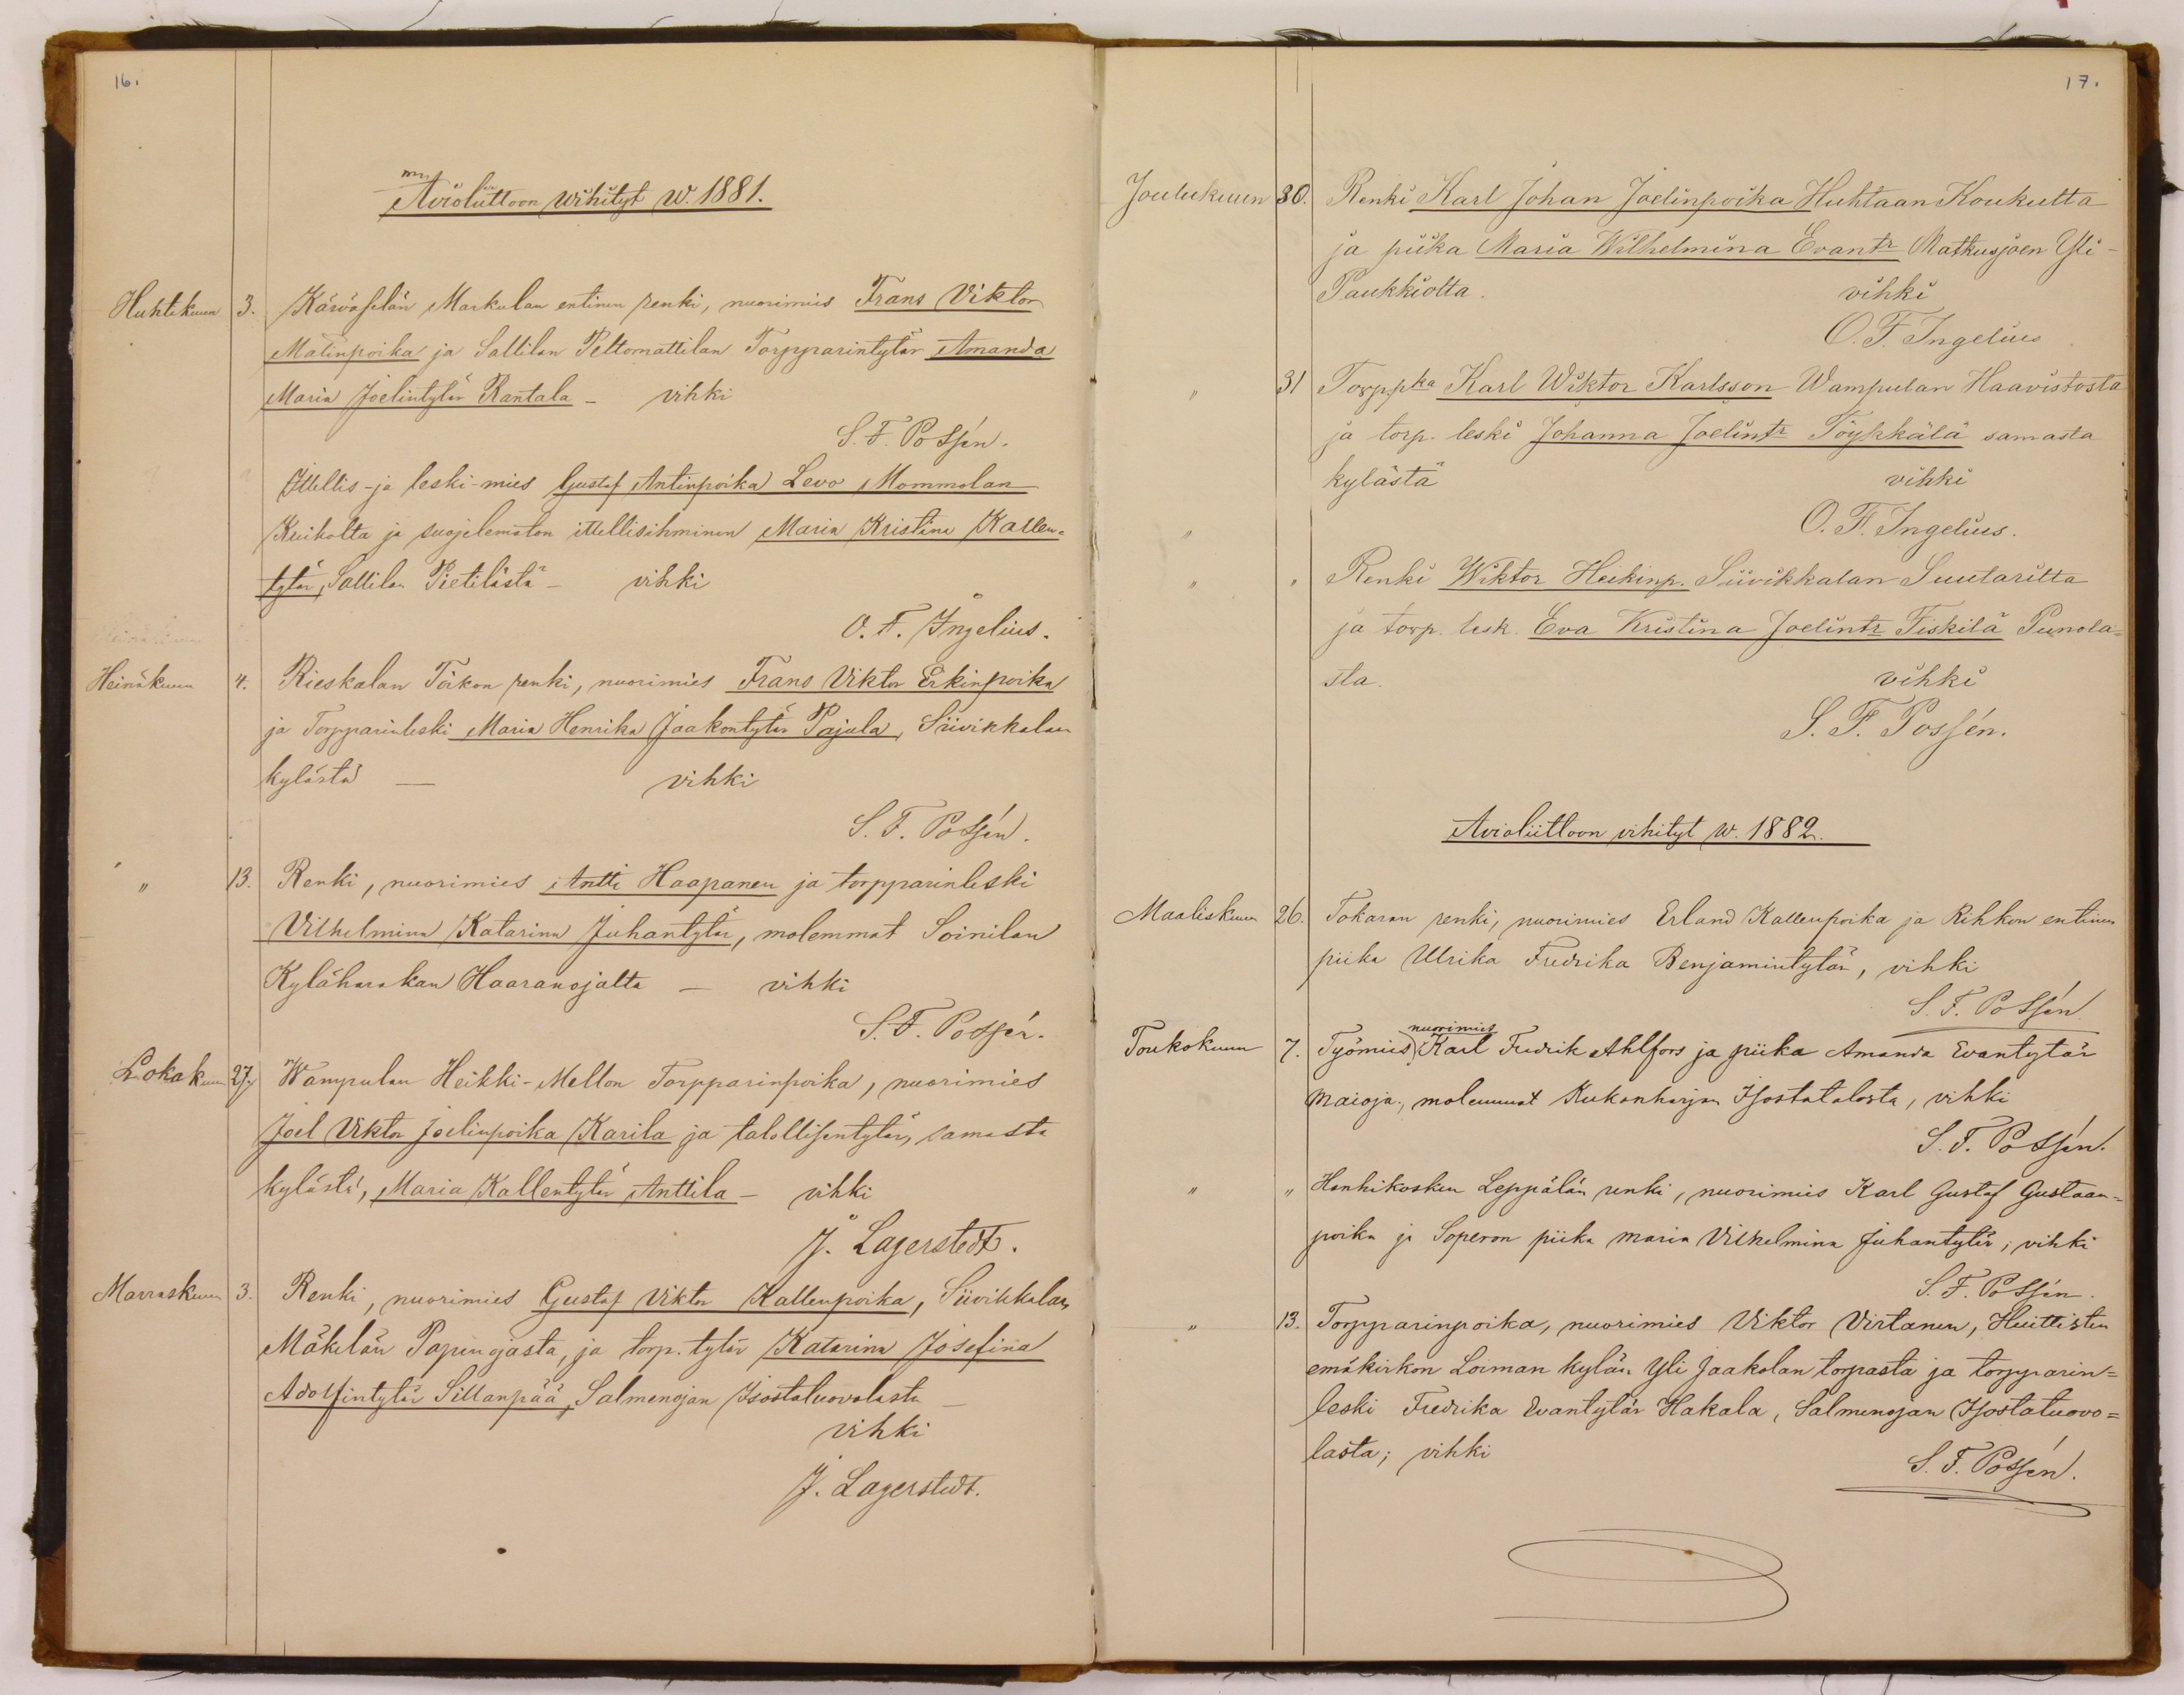 16.
Avioliittoon wihityt w. 1881.
Huhtikuun 3. Käwäselän Markulan entinen renki, nuorimies Frans Viktor
Matinpoika ja Sallilan Peltomattilan Torpparintytär Amanda
Maria Joelintytär Rantala – vihki
S. F. Possén.
Ittellis- ja leski-mies Gustaf Antinpoika Levo Mommolan
ja suojelematon ittellisihminen Maria Kristina Kallen=
tytär, Sallilan Pietilästä – vihki
O. F. Ingelius.
Heinäkuun 4. Rieskalan renki, nuorimies Frans Viktor Erkinpoika
ja Torpparinleski Maria Henrika Jaakontytär Pajula, Siivikkalan
kylästä — vihki
S. F. Possén.
" 13. Renki, nuorimies Antti Haapanen ja torpparinleski
Vilhelmina Katarina Juhantytär, molemmat Soinilan
Kyläharakan Haaranojalta — vihki
S. F. Possén.
Lokakuun 27. Wampulan Heikki-Mellon Torpparinpoika, nuorimies
Joel Viktor Joelinpoika Karila ja talollisentytär, samasta
kylästä, Maria Kallentytär Anttila – vihki
J. Lagerstedt.
Marraskuun 3. Renki, nuorimies Gustaf Viktor Kallenpoika, Siivikkalan
Mäkelän Papinojasta, ja torp. tytär Katarina Josefina
Adolfintytär Sillanpää, Salmenojan Isostaluovolasta –
vihki
J. Lagerstedt.
17.
Joulukuun 30. Renki Karl Johan Joelinpoika Huhtaan Koukulta
ja piika Maria Wilhelmina Evantr Matkusjoen Yli-
Paukkiolta. vihki
O. F. Ingelius
" 31 Torppka Karl Wiktor Karlsson Wampulan Haavistosta
ja torp. leski Johanna Joelintr Töykkälä samasta
kylästä vihki
" O. F. Ingelius.
" " Renki Wiktor Heikinp. Siivikkalan Suutarilta
ja torp. lesk. Eva Kristina Joelintr Fiskilä Punola=
sta. vihki
S. F. Possén.
Avioliittoon vihityt w. 1882.
Maaliskuun 26. Tokaran renki, nuorimies Erland Kallenpoika ja Rihkon entinen
piika Ulrika Fredrika Benjamintytär, vihki
S. F. Possén
nuorimies
Toukokuun 7. Työmies, Karl Fredrik Ahlfors ja piika Amanda Evantytär
Maioja, molemmat Kukonharjan Isostatalosta, vihki
S. F. Possén.
" " Hanhikosken Leppälän renki, nuorimies Karl Gustaf Gustaan=
poika ja Soperon piika Maria Vilhelmina Juhantytär; vihki
S. F. Possén.
" 13. Torpparinpoika, nuorimies Viktor Virtanen, Huittisten
emäkirkon Loiman kylän Yli Jaakolan torpasta ja torpparin=
leski Fredrika Evantytär Hakala, Salmenojan Isostatuovo=
lasta; vihki
S. F. Possén.